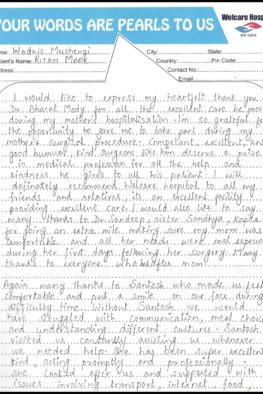 YOUR WORDS ARE PEARLS TO US
Welcare Hospital
WE CARE
Name: Wadzie Muchengi
City: State:
Patient's Name: RITAH MARK
Country: Pin Code:
Address:
Contact No.:
E-mail
I would like to express my heartfelt thank you
Dr. Bharat Mody for all the excellent care he gave
during my mother's hospitalisation. I'm so grateful for
the opportunity he gave me to take part during my
mother's surgical procedure. Competent, excellent and
good humour. Kind surgeons like him deserve a prize
in medical profession for all the help and
kindness he gives to all his patient. I will
definately recommend Welcare hospital to all my
friends and relatives, its an excellent facility
providing excellent care. I would also like to say
many thanks to Dr. Sandeep, sister Sandhya,
for going an extra mile making sure my mom was
comfortable and all her needs were met especia
during her first days following her surgery. Many
thanks to everyone who mom.
Again many thanks to Santosh who made us feel
comfortable and put a smile on our face during
difficulty time. Without Santosh we would
have struggled with communication, meal choice
and understanding different cultures. Santosh
visited us constantly assisting us whenever
we needed help. She has been super excellent
kind, acting promptly and professionally.
She looked after us and supported with
issues involving transport, internet, food,